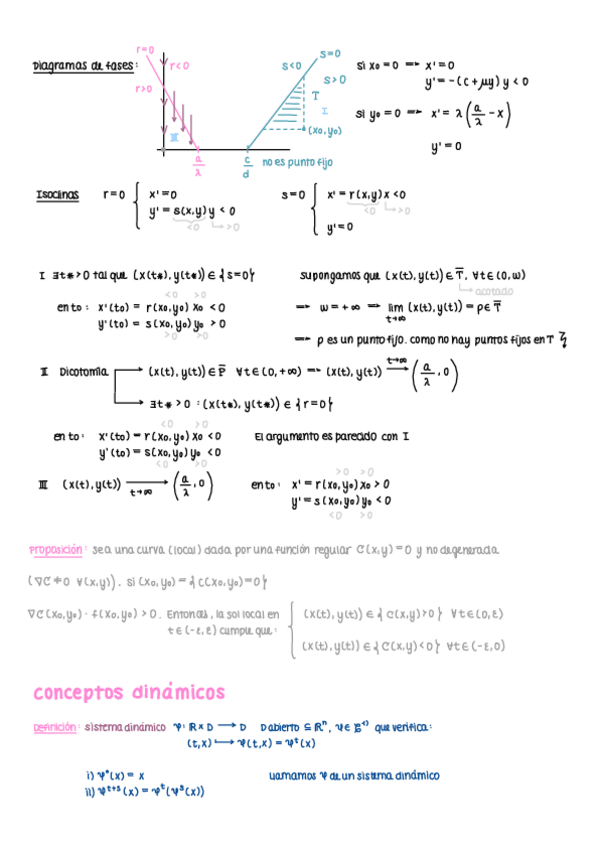 Diagramas de fases:
r=0
r<0
r>0
III
a/λ
s=0
s<0
s>0
T
I
(x0,y0)
c/d
no es punto fijo
Si x0 = 0 ⇒ x' = 0
y' = -(c + μy) y < 0
Si y0 = 0 ⇒ x' = λ(a/λ - x)
y' = 0
Isoclinas r=0 { x' = 0
y' = s(x,y) y < 0
<0 >0
s=0 { x' = r(x,y) x < 0
<0 >0
y' = 0
I ∃t* > 0 tal que (x(t*), y(t*)) ∈ {s=0}
<0 >0
en to: x'(to) = r(x0,y0) x0 < 0
y'(to) = s(x0,y0) y0 > 0
>0 >0
supongamos que (x(t), y(t)) ∈ T̅, ∀t ∈ (0,ω)
acotado
⇒ ω = +∞ ⇒ lim t→∞ (x(t), y(t)) = p ∈ T̅
⇒ p es un punto fijo. como no hay puntos fijos en T
II Dicotomía (x(t), y(t)) ∈ P̅ ∀t ∈ (0,+∞) ⇒ (x(t), y(t)) t→∞ → (a/λ, 0)
∃t* > 0 : (x(t*), y(t*)) ∈ {r=0}
<0 >0
en to: x'(to) = r(x0,y0) x0 < 0 El argumento es parecido con I
y'(to) = s(x0,y0) y0 < 0
<0 >0
III (x(t), y(t)) → t→∞ (a/λ, 0)
>0 >0
en to: x' = r(x0,y0) x0 > 0
y' = s(x0,y0) y0 < 0
<0 >0
Proposición: sea una curva (local) dada por una función regular C(x,y) = 0 y no degenerada
(∇C ≠ 0 ∀(x,y)). Si (x0,y0) = {C(x0,y0) = 0}
∇C(x0,y0) · f(x0,y0) > 0. Entonces, la sol local en
t ∈ (-ε, ε) cumple que:
(x(t), y(t)) ∈ {C(x,y) > 0} ∀t ∈ (0,ε)
(x(t), y(t)) ∈ {C(x,y) < 0} ∀t ∈ (-ε,0)
conceptos dinámicos
Definición: sistema dinámico Ψ: ℝ x D → D D abierto ⊆ ℝⁿ, que verifica:
(t,x) ↦ Ψ(t,x) = Ψᵗ(x)
i) Ψ⁰(x) = x
ii) Ψᵗ⁺ˢ(x) = Ψᵗ(Ψˢ(x))
Llamamos Ψ de un sistema dinámico